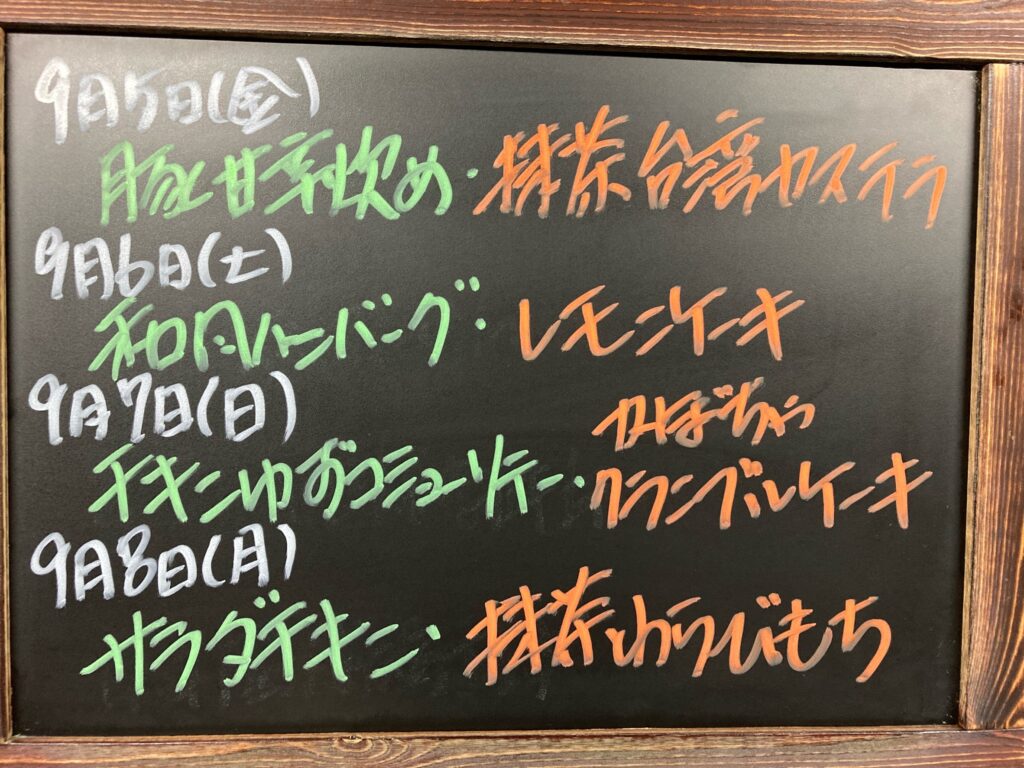 9月5日(金)
豚甘辛炒め・抹茶台湾カステラ
9月6日(土)
和風ハンバーグ・レモンケーキ
9月7日(日)
かぼちゃ
チキンゆずコショーソテー・クランブルケーキ
9月8日(月)
サラダチキン・抹茶わらびもち